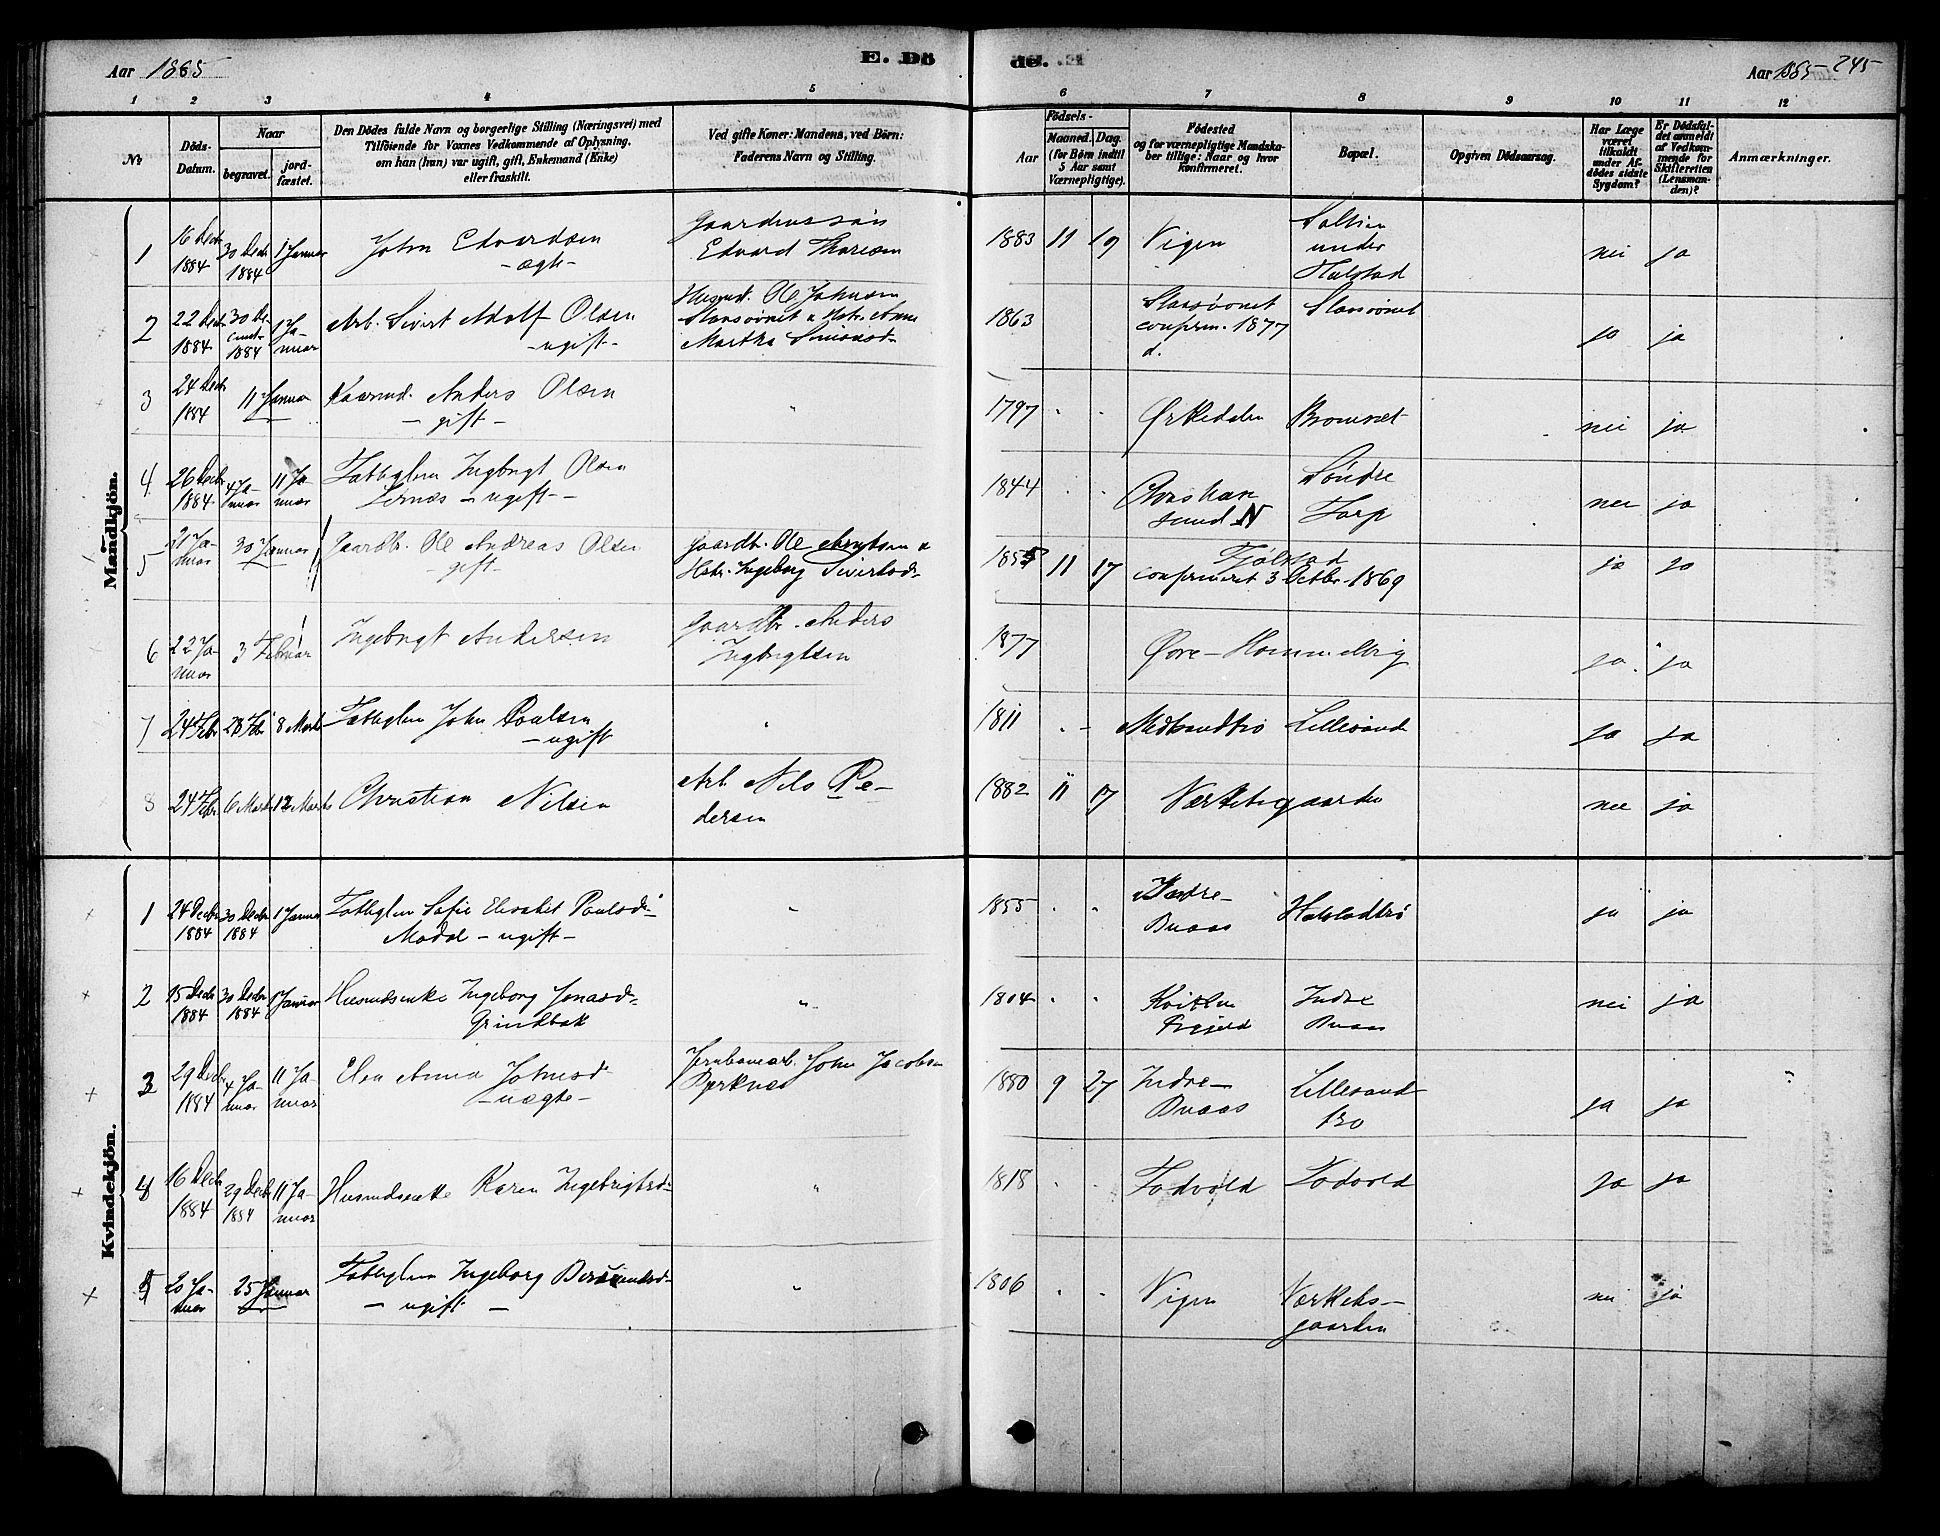 Aar 1885
E. Dö
de.
Aar 1885 245
1 2 3 4 5 6 7 8 9 10 11 12
№
Döds-Datum.
Naar
begravet.
jord-fæstet.
Den Dödes fulde Navn og borgerlige Stilling (Næringsvei) med
Tilföiende for Voxnes Vedkommende af Oplysning,
om han (hun) var ugift, gift, Enkemand (Enke)
eller fraskilt.
Ved gifte Koner: Mandens, ved Börn:
Faderens Navn og Stilling.
Födsels-
Aar
Maaned.
Dag.
(for Börn indtil
5 Aar samt
Værnepligtige).
Födested
og for værnepligtige Mandska-
ber tillige: Naar og hvor
konfirmeret.
Bopæl.
Opgiven Dödsaarsag.
Har Læge
været
tilkaldt
under Af-
dödes sidste
Sygdom?
Er Dödsfal-
det anmeldt
af Vedkom-
mende for
Skifteretten
(Lensman-
den)?
Anmærkninger.
Mandkjön.
1 16 Decbr 1884 30 Decbr 1884 1 Januar John Edvardsen
- ægte -
Gaardmssön
Edvard Thoresen
1883 11 19 Vigen
under
Halstad
nei ja
2 22 Decbr 1884 30 Decmbr 1884 1 Januar Arb. Sivert Adolf Olsen
- ugift -
Husmd. Ole Johnsen
Stavsövnet & Hstr. Anne
Martha Simonsd.
1863 Stavsövnet
confirm. 1877
d.
Stavsövnet
ja ja
3 24 Decbr 1884 11 Januar Kaarmd. Anders Olsen
- gift -
"
1797 " " Ørkedalen nei ja
4 26 Decbr 1884 4 Januar 11 Januar Fattiglem Ingbrigt Olsen
Lernæs - ugift -
1844 " " Christiansund N
Söndre
Torp
nei ja
5 21 Januar 30 Januar Gaardbr. Ole Andreas Olsen
- gift -
Gaardbr. Ole Arntsen &
Hstr. Ingeborg Sivertsd.
1855 11 17 Fjölstad
confirmeret 3 Octbr. 1869
ja ja
6 22 Januar 3 Februar Ingebrigt Andersen
Gaardbr. Anders
Ingbrigtsen
1877 Øvre - Hommelvig ja ja
7 24 Febr 28 Febr 8 Marts Fattiglem John Paulsen
- ugift
"
1811 " - Midtsandtrö Lillesand ja ja
8 24 Febr. 6 Marts 12 Marts Christian Nilsen
Arb. Nils Pe-
dersen
1882 11 17 Værketsgaarden nei ja
Kvindekjön.
1 24 Decbr 1884 30 Decbr 1884 1 Januar Fattiglem Sofie Elisabet Paulsd.
- ugift -
"
1855 " " Indre-
Buaas
Halstadtrö ja ja
2 15 Decbr 1884 30 Decbr 1884 1 Januar Husmdsenke Ingeborg Jonasd.
Grindbak
"
1804 " "
Indre
Buaas
nei ja
3 29 Decbr 1884 4 Januar 11 Januar Elen Anna Johnsd.
- uægte -
Jernbanearb. John Jacobsen
Byrknes
1880 9 27 Indre-
Buaas
Lillesand
tro
ja ja
4 16 Decbr 1884 29 Decbr 1884 11 Januar Husmdsenke Karen Ingebrigtsd.
"
1818 " " Fodvold Fodvold ja ja
5 20 Januar 25 Januar Fattiglem Ingeborg
- ugift -
"
1806 " " Vigen Værkets-
gaarden
nei ja